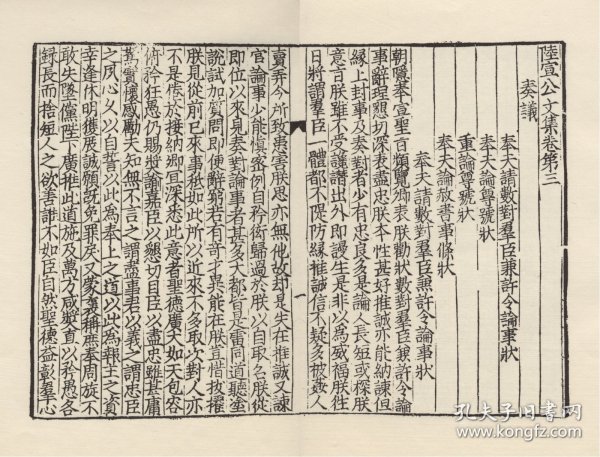 陸宣公文集卷第三
奏議
奉天請數對羣臣兼許令論事狀
奉天論尊號狀
重論尊號狀
奉天論赦書事條狀
奉天請數對羣臣兼許令論事狀
朝隱奉宣聖旨頻覽卿表狀勸朕數對羣臣兼許令論
事辭理懇切深表盡忠朕本性甚好推誠亦能納諫但
緣上封事及奏對者少有忠良多是論人長短或探朕
意旨朕雖不受讒譖出外即謾生是非以為威福朕往
日將謂羣臣一體都不隄防緣推誠信不疑多被姦人
賣弄今所致患害朕思亦無他故却是失在推誠又諫
官論事少能慎密例自矜衒歸過於朕以自取名朕從
即位以來見奏對論事者甚多大都皆是雷同道聽塗
說試加質問即便辭窮若有奇才異能在朕豈惜拔擢
朕見從前已來事秖如此所以近來不多取次對人亦
不是倦於接納卿宜深悉此意者聖德廣大如天包容
俯矜狂愚仍賜獎諭嘉臣以懇切目臣以盡忠雖甚庸
駑實懷感勵夫知無不言之謂盡事君以義之謂忠臣
之夙心久以自誓以此為奉上之道以此為報主之資
幸逢休明獲展誠願既免罪戾又蒙褒稱庶奉周旋不
敢失墜儻陛下廣推此道施及萬方咸獎直以矜愚各
録長而捨短人之欲善誰不如臣自然聖德益彰羣心
一
孔夫子旧书网
www.kongfz.com